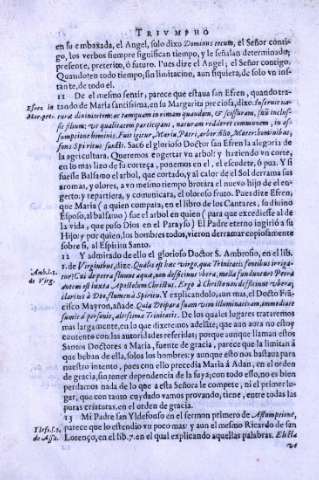 TRIVMPHO
en su embaxada, el Angel, solo dixo Dominus tecum, el Señor conti-
go, los verbos siempre significan tiempo, y le señalan determinado;
presente, preterito, ò futuro. Pues dize el Angel; el Señor contigo.
Quando en todo tiempo, sin limitacion, aun siquiera, de solo vn ins-
tante, de todo el.
11 De el mesmo sentir, parece que estaua san Efren, quando tra-
tando de Maria santissima, en su Margarita preciosa, dixo.
Efren in
Margar.
filium; vt qualitatem participans, naturam redderet communem, in as-
sumptione hominis. Fuit igitur, Maria, Patri, arbor; filio, Mater; hominibus,
fons Spiritus sancti. Sacò el glorioso Doctor san Efren la alegoria de
la agricultura. Queremos engertar vn arbol y haziendo vn corte,
en lo mas lizo de la corteça, ponemos en el, el escudete, ò pua. Y si
fuesse Balsamo el arbol, que cortado, y al calor de el Sol derrama sus
aromas, y olores, a vn mesmo tiempo brotarà el nueuo hijo de el en-
gerto; y repartiera, y comunicara, el oloroso fruto. Pues dize Efren,
que Maria (a quien compara, en el libro de los Cantares, su diuino
Esposo, al balsamo) fue el arbol en quien (para que excediesse al de
la vida, que puso Dios en el Parayso) El Padre eterno ingiriò a su
Hijo; y por quien, los hombres todos, vieron derramar copiosamente
sobre si, al Espiritu Santo.
12 Y admirado de ello el glorioso Doctor S. Ambrosio, en el lib.
Amb. l. 1.
de Virg.
1. de Virginibus, dize. Qualis est hæc virgo, quæ Trinitatis fontibus irriga-
tur? Cui de petra fluunt aquæ, non deficiunt vbera, mella funduntur? Petra
autem est iuxta Apostolum Christus. Ergo à Christo non deficiunt vbera;
claritas à Deo, flumen à Spiritu. Y explicandolo, aun mas, el Docto Frã-
cisco Mayron, añade. Quia Deipara suam vim illuminatiuam, immediatè
sumit à personis, altissimæ Trinitatis. De los quales lugares trataremos
mas largamente, en lo que dixere; nos adelante; que aun aora no estoy
contento con las autoridades referidas; porque aunque llaman estos
Santos Doctores a Maria, fuente de gracia, parece que la limitan à
que beban de ella, solos los hombres; y aunque esto nos bastaua para
nuestro intento, pues con ello precedia Maria à Adan, en el orden
de gracia, sin tener dependencia de la suya; con todo esso, no es bien
perdamos nada de lo que à esta Señora le compete, ni el primer lu-
gar, que con tanto cuydado vamos prouando, tiene, entre todas las
puras criaturas, en el orden de gracia.
13 Mi Padre san Yldefonso en el sermon primero de Assumptione,
de Assu.
parece que lo estendio vn poco mas; y aun el mesmo Ricardo de san
Lorenço, en el lib. 7. en el qual explicando aquellas palabras. Electa